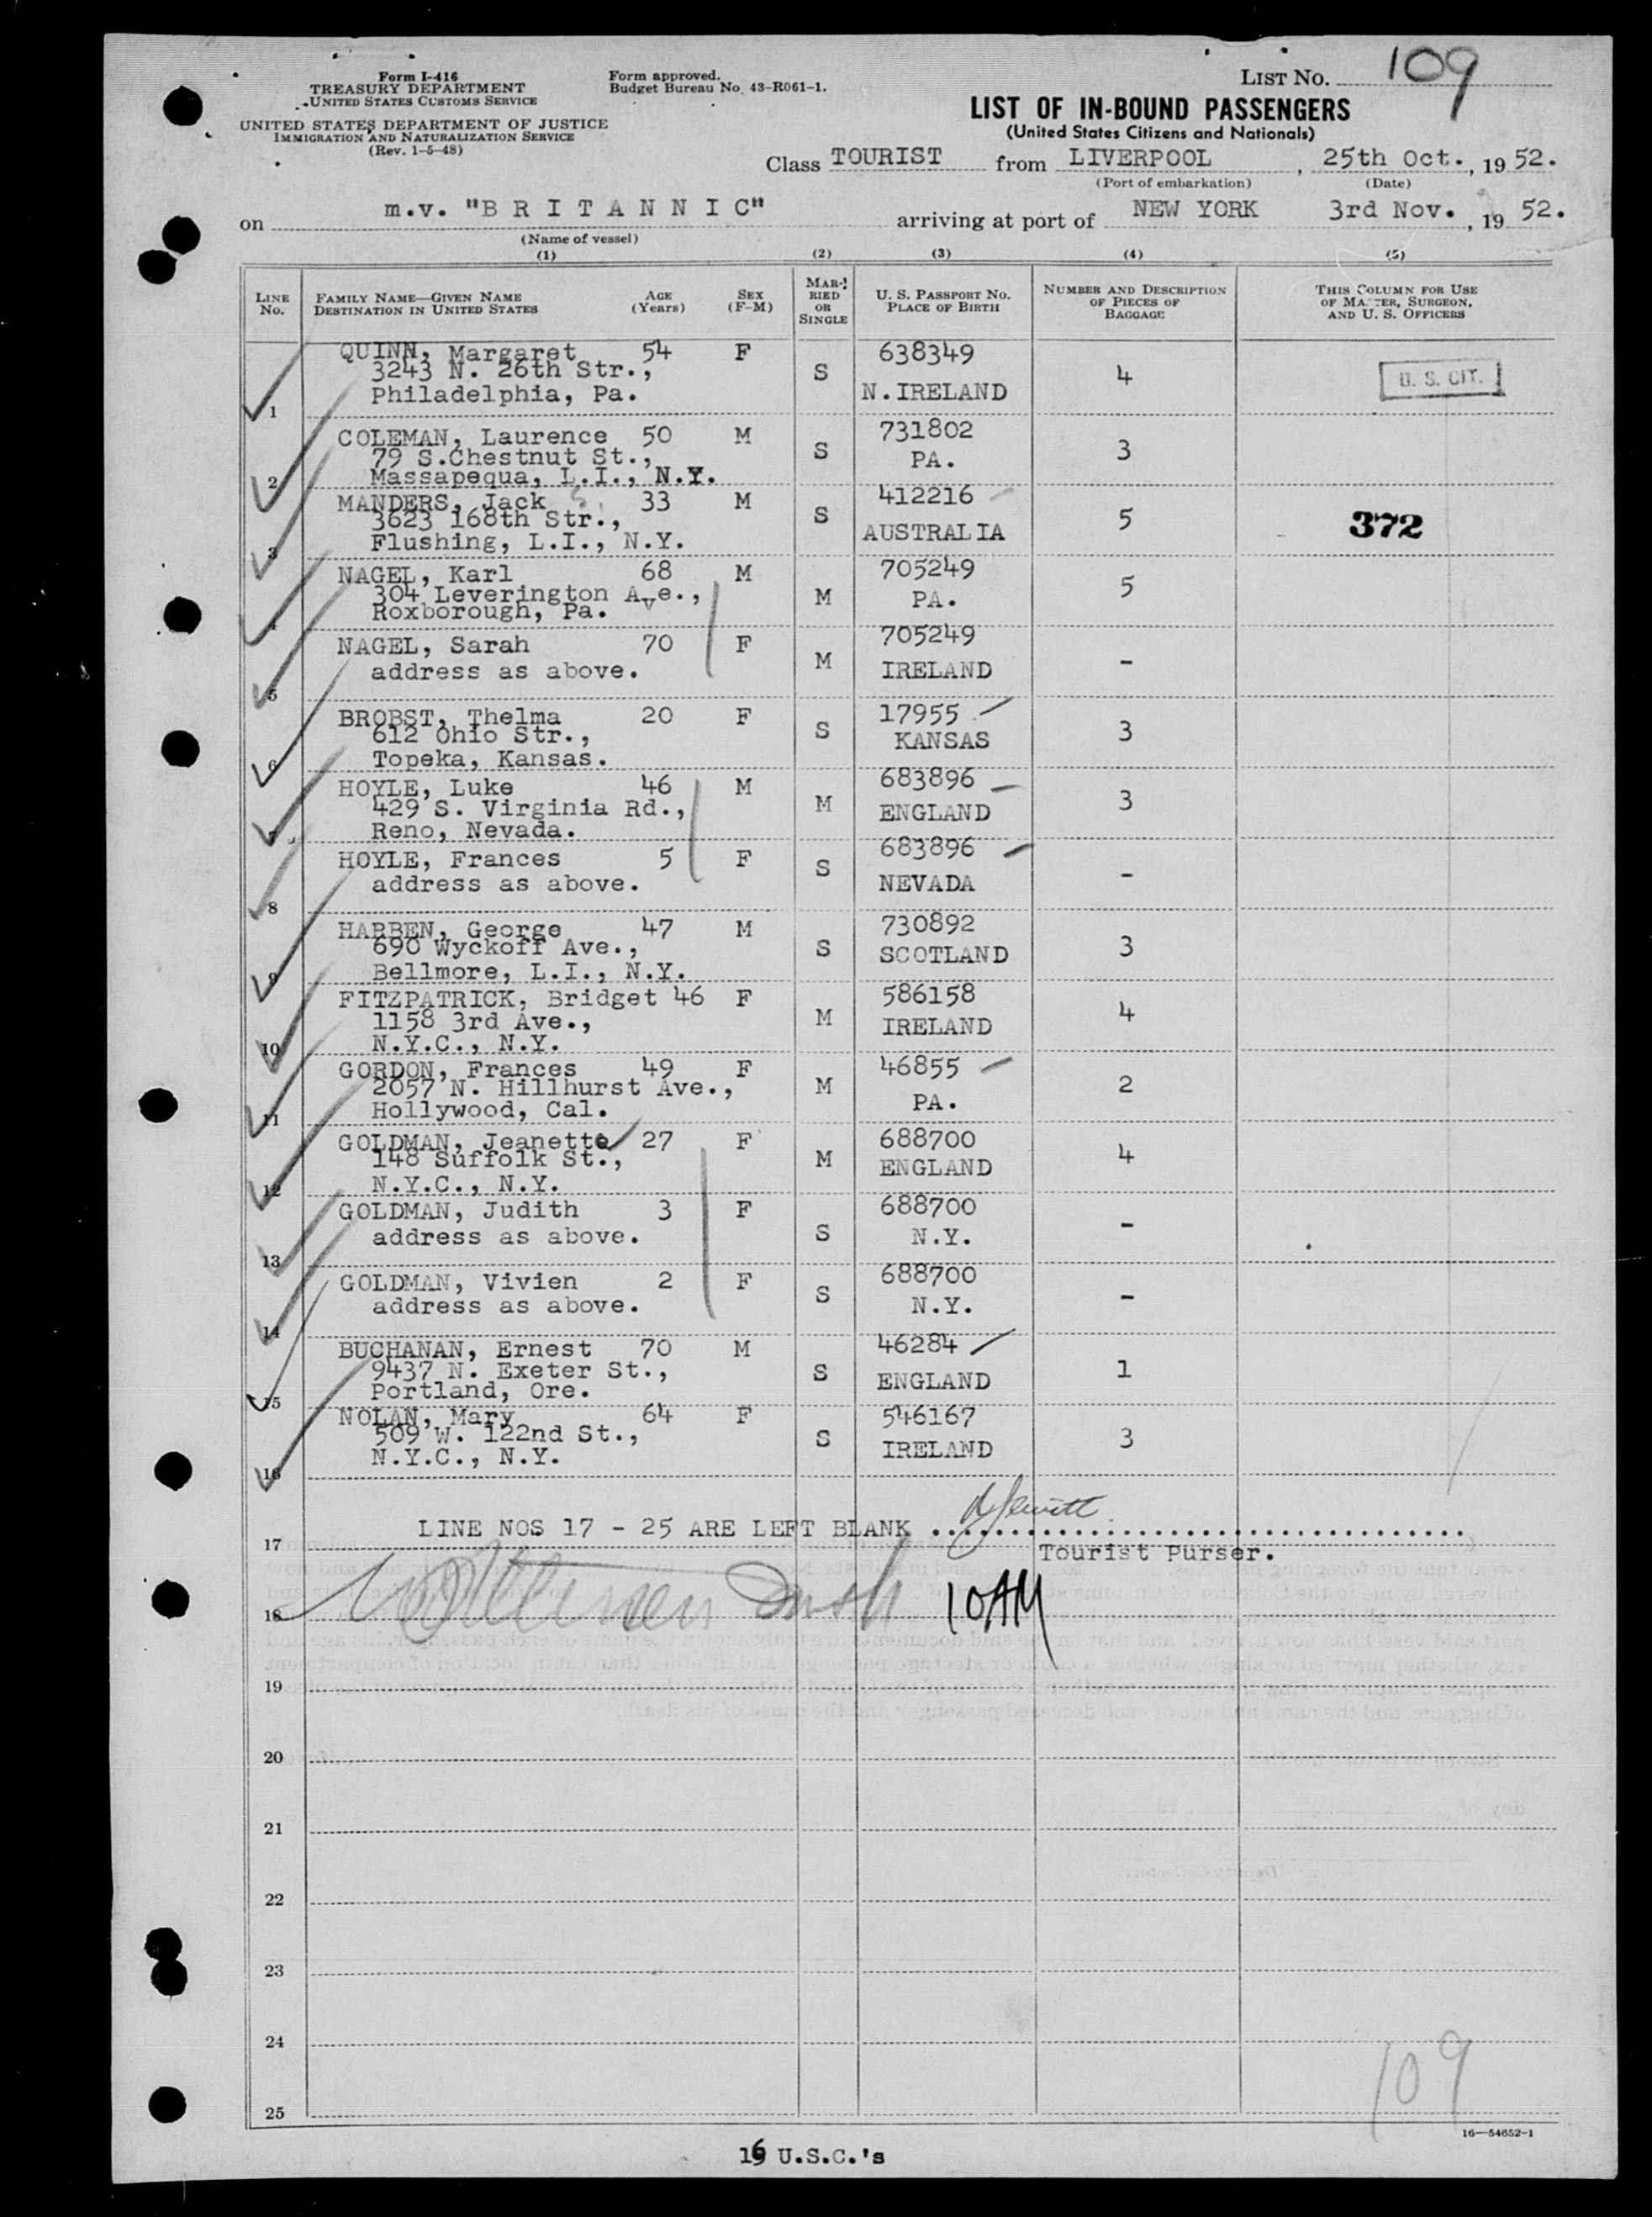 Form I-416
TREASURY DEPARTMENT
UNITED STATES CUSTOMS SERVICE
UNITED STATES DEPARTMENT OF JUSTICE
IMMIGRATION AND NATURALIZATION SERVICE
(Rev. 1-5-48)
Form approved.
Budget Bureau No. 43-R061-1.
LIST NO. 109
LIST OF IN-BOUND PASSENGERS
(United States Citizens and Nationals)
Class TOURIST from LIVERPOOL, 25th Oct., 19 52.
(Port of embarkation) (Date)
on m.v. "B R I T A N N I C" arriving at port of NEW YORK 3rd Nov. , 19 52.
(Name of vessel)
(1) (2) (3) (4) (5)
LINE NO. FAMILY NAME—GIVEN NAME DESTINATION IN UNITED STATES AGE (Years) SEX (F-M) MARRIED OR SINGLE U. S. PASSPORT NO. PLACE OF BIRTH NUMBER AND DESCRIPTION OF PIECES OF BAGGAGE THIS COLUMN FOR USE OF MASTER, SURGEON, AND U. S. OFFICERS
QUINN, Margaret 54 F 638349
3243 N. 26th Str., S 4 U. S. CIT.
1 Philadelphia, Pa. N.IRELAND
COLEMAN, Laurence 50 M 731802
79 S.Chestnut St., S PA. 3
2 Massapequa, L.I., N.Y.
MANDERS, Jack 33 M 412216
3623 168th Str., S 5 372
3 Flushing, L.I., N.Y. AUSTRALIA
NAGEL, Karl 68 M 705249
304 Leverington Ave., M PA. 5
4 Roxborough, Pa.
NAGEL, Sarah 70 F 705249
address as above. M IRELAND -
5
BROBST, Thelma 20 F 17955
612 Ohio Str., S KANSAS 3
6 Topeka, Kansas.
HOYLE, Luke 46 M 683896
429 S. Virginia Rd., M ENGLAND 3
7 Reno, Nevada.
HOYLE, Frances 5 F 683896
address as above. S NEVADA -
8
HARBEN, George 47 M 730892
690 Wyckoff Ave., S SCOTLAND 3
9 Bellmore, L.I., N.Y.
FITZPATRICK, Bridget 46 F 586158
1158 3rd Ave., M IRELAND 4
10 N.Y.C., N.Y.
GORDON, Frances 49 F 46855
2057 N. Hillhurst Ave., M 2
11 Hollywood, Cal. PA.
GOLDMAN, Jeanette 27 F 688700
148 Suffolk St., M ENGLAND 4
12 N.Y.C., N.Y.
GOLDMAN, Judith 3 F 688700
address as above. S N.Y. -
13
GOLDMAN, Vivien 2 F 688700
address as above. S N.Y. -
14
BUCHANAN, Ernest 70 M 46284
9437 N. Exeter St., S ENGLAND 1
15 Portland, Ore.
NOLAN, Mary 64 F 546167
509 W. 122nd St., S IRELAND 3
16 N.Y.C., N.Y.
LINE NOS 17 - 25 ARE LEFT BLANK
17 Tourist Purser.
18 10AM
19
20
21
22
23
24
109
25
16—54652-1
16 U.S.C.'s